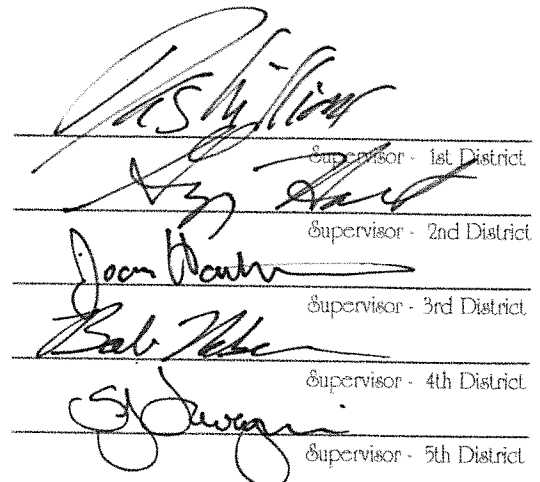 Das Williams
Supervisor - 1st District
Hart
Supervisor - 2nd District
Joan
Supervisor - 3rd District
Bob
Supervisor - 4th District
Supervisor - 5th District